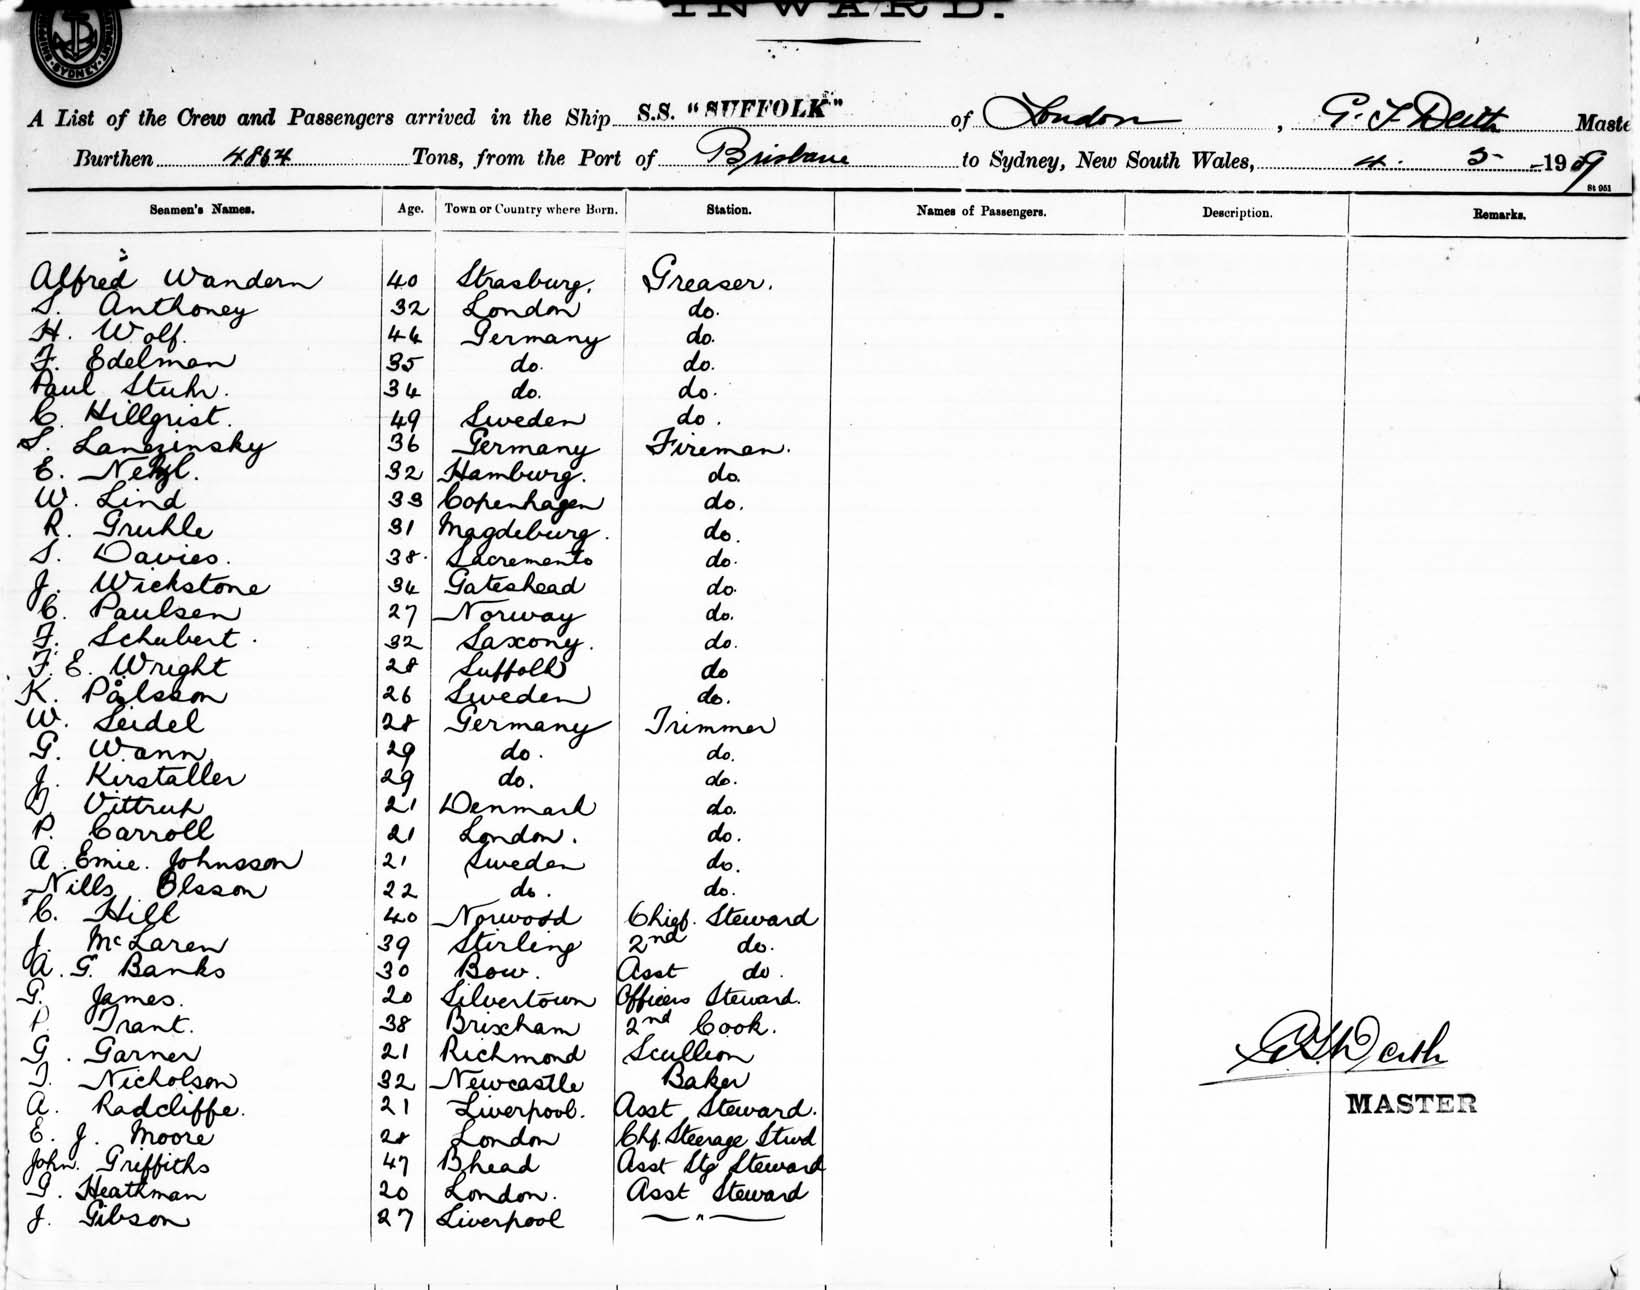 INWARD.
SYDNEY
A List of the Crew and Passengers arrived in the Ship S.S. "SUFFOLK" of London, G. F Deith Maste
Burthen 4864 Tons, from the Port of Brisbane to Sydney, New South Wales, 4. 5 -1909
St 951
Seamen's Names. Age. Town or Country where Born. Station. Names of Passengers. Description. Remarks.
Alfred Wandern 40 Strasburg. Greaser.
S. Anthoney 32 London do.
H. Wolf. 44 Germany do.
F. Edelman 35 do. do.
Paul Stuhr. 34 do. do.
C. Hillgrist. 49 Sweden do.
S. Lanezinsky 36 Germany Fireman.
E. 32 Hamburg. do.
W. Lind 33 Copenhagen do.
R. Gruhle 31 Magdeburg. do.
S. Davies. 38. Sacremento do.
J. Wickstone 34 Gateshead do.
C. Paulsen 27 Norway do.
F. Schubert. 32 Saxony. do.
F. E. Wright 28 Suffolk do
K. Pålsson 26 Sweden do.
W. Seidel 28 Germany Trimmer
G. Wann. 29 do. do.
J. Kirstaller 29 do. do.
Vittrup 21 Denmark do.
P. Carroll 21 London. do.
A. Emie. Johnsson 21 Sweden do.
Nills Olsson 22 do. do.
C. Hill 40 Norwood Chief. Steward
J. McLaren 39 Stirling 2nd do.
A. G. Banks 30 Bow. Asst do.
G. James. 20 Silvertown Officers Steward.
P. Trant. 38 Brixham 2nd Cook.
G. Garner 21 Richmond Scullion
Nicholson 32 Newcastle Baker
A. Radcliffe. 21 Liverpool. Asst Steward.
E. J. Moore 28 London Chf. Steerage Stwd
John. Griffiths 47 Bhead Asst Stg Steward
G. Heathman 20 London. Asst Steward
J. Gibson 27 Liverpool — " —
G F Deith
MASTER